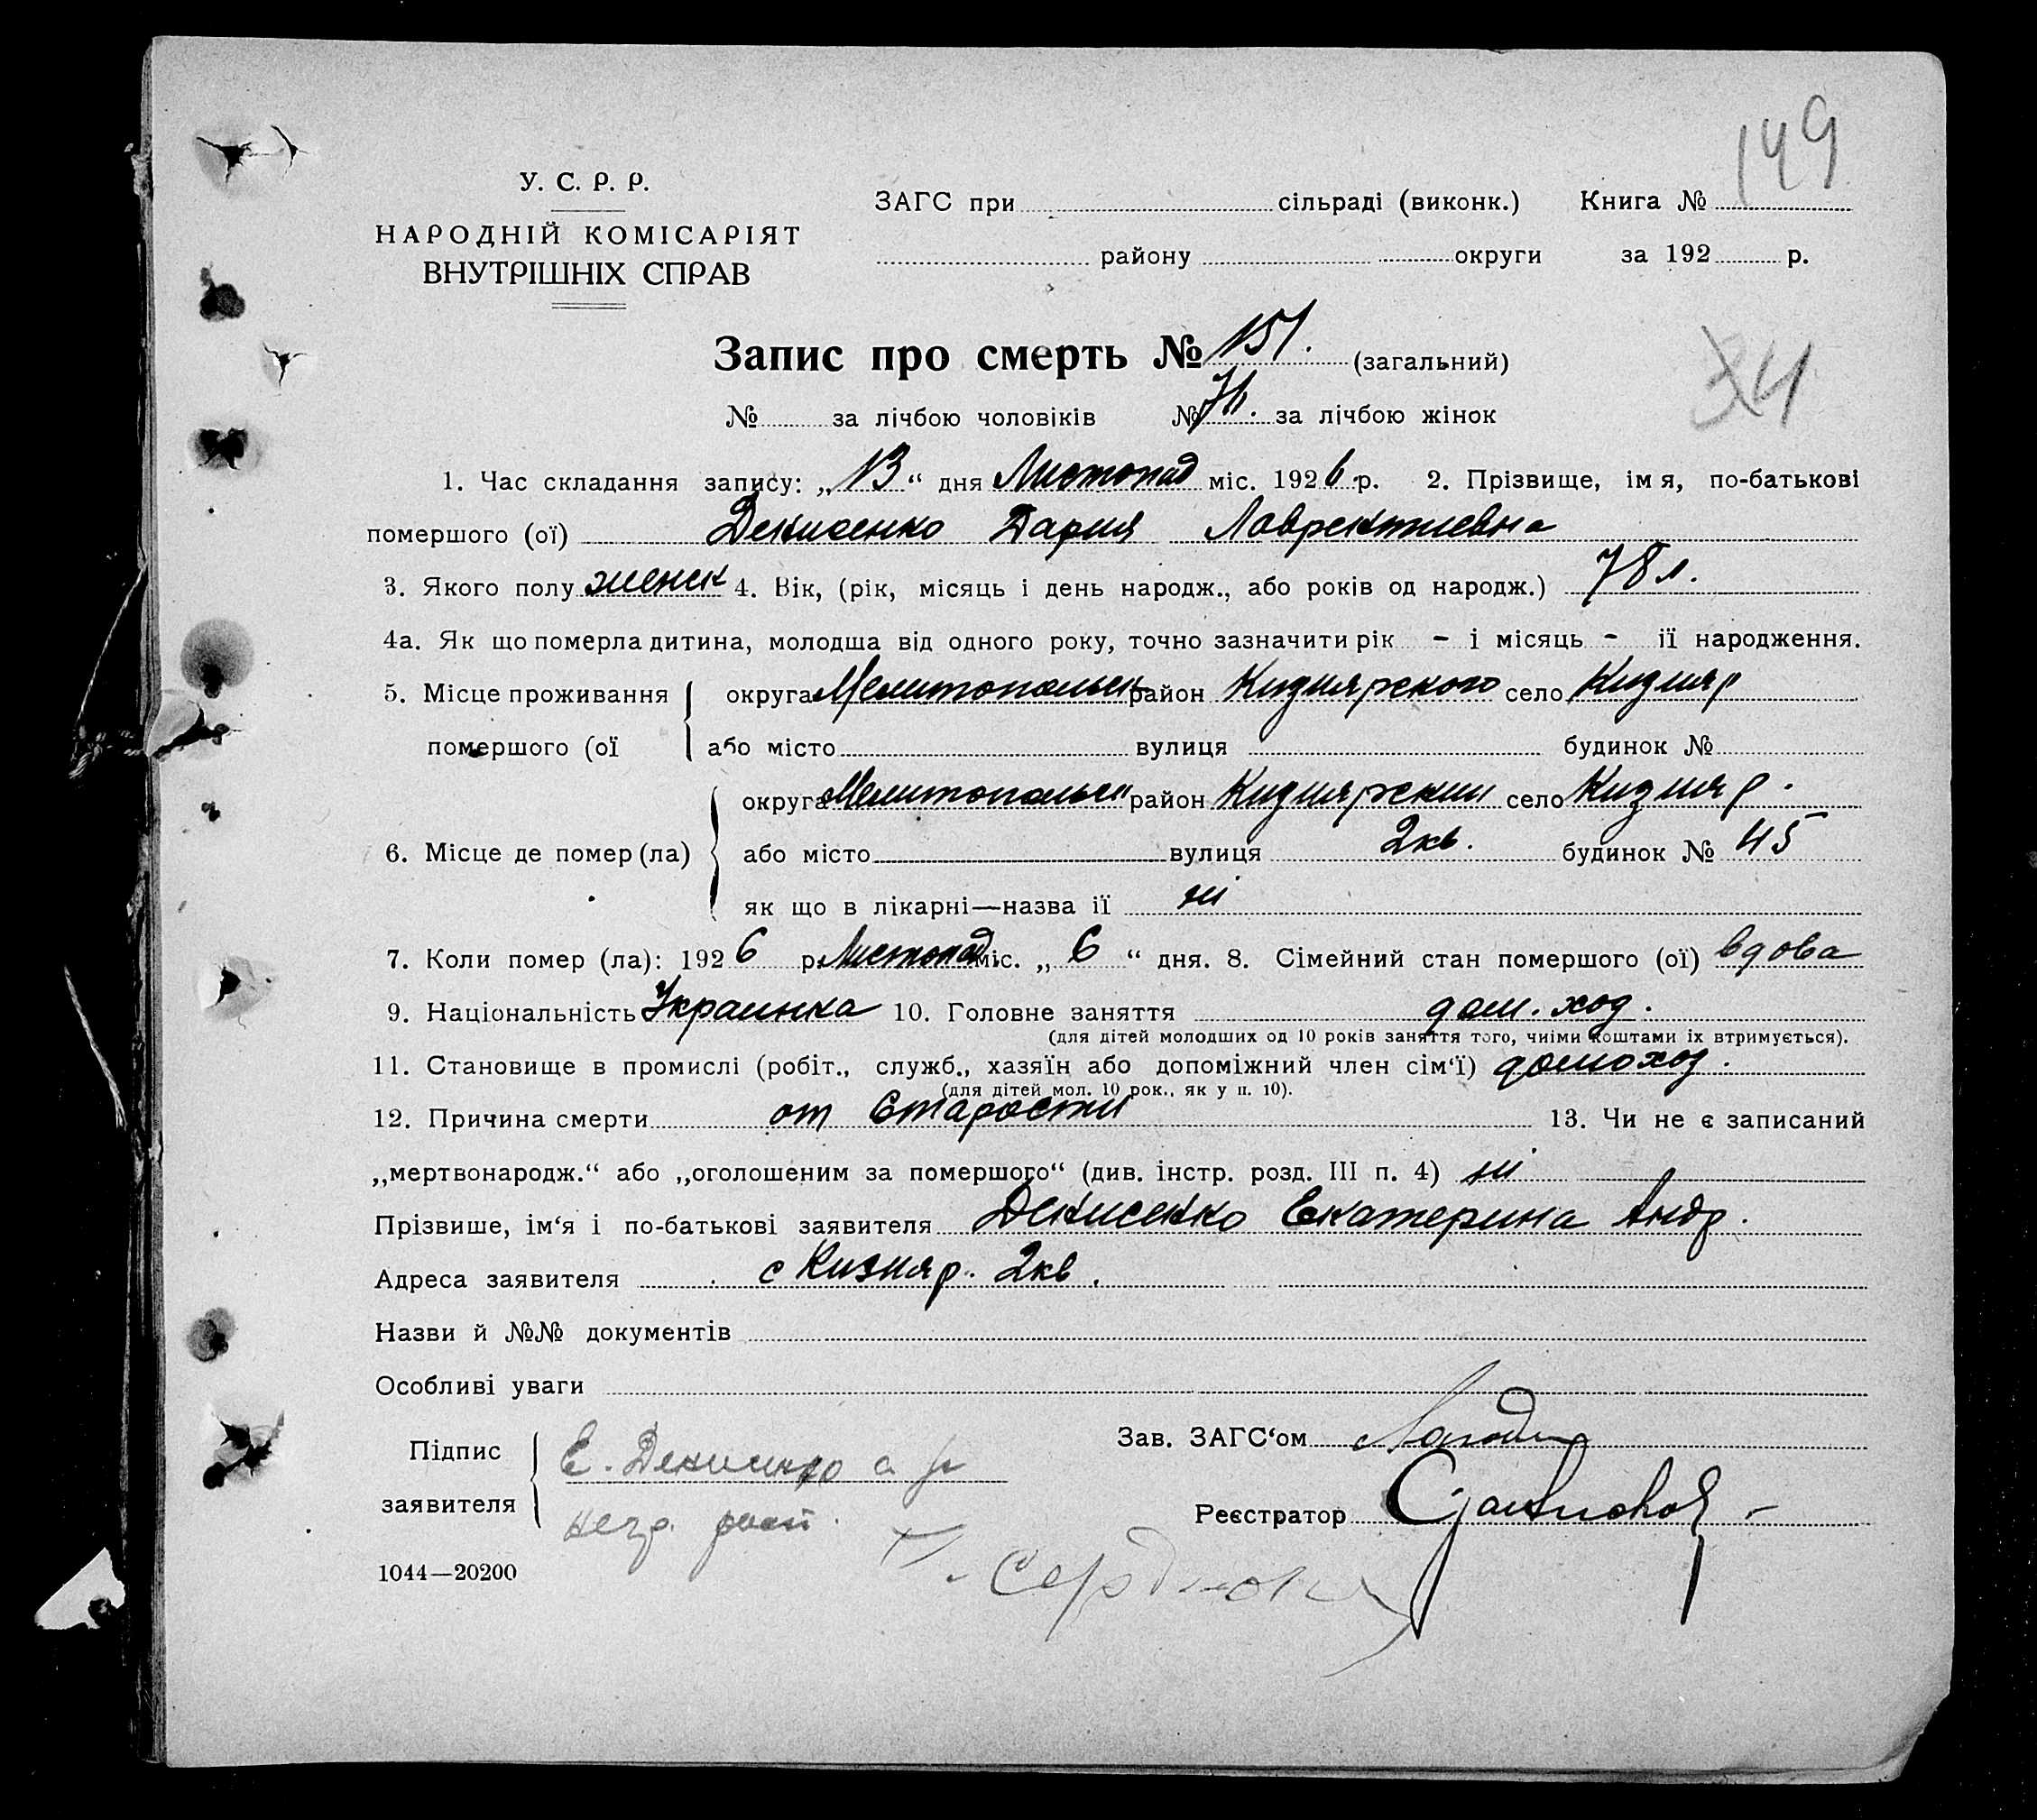 149
У. С. Р. Р.
НАРОДНІЙ КОМІСАРІЯТ
ВНУТРІШНІХ СПРАВ
ЗАГС при сільраді (виконк.) Книга №
району округи за 192 р.
Запис про смерть № 151. (загальний)
34
№ за лічбою чоловіків № 76. за лічбою жінок
1. Час складання запису: „13“ дня Листопад міс. 1926 р. 2. Прізвище, імя, по-батькові
помершого (ої) Денисенко Дария Лаврентиевна
3. Якого полу женск 4. Вік, (рік, місяць і день народж., або років од народж.) 78 л.
4а. Як що померла дитина, молодша від одного року, точно зазначити рік - і місяць - її народження.
5. Місце проживання округа Мелитопольск район Кизиярского село Кизияр
помершого (ої або місто вулиця будинок №
округа Мелитопольск район Кизиярский село Кизияр.
6. Місце де помер (ла) або місто вулиця 2кв. будинок № 45
як що в лікарні—назва її ні
7. Коли помер (ла): 1926 р. Листопад міс. „6“ дня. 8. Сімейний стан помершого (ої) вдова
9. Національність Украинка 10. Головне заняття дом. ход.
(для дітей молодших од 10 років заняття того, чиїми коштами їх втримується).
11. Становище в промислі (робіт., служб., хазяїн або допоміжний член сім‘ї) домоход.
(для дітей мол. 10 рок., як у п. 10).
12. Причина смерти от Старости 13. Чи не є записаний
„мертвонародж.“ або „оголошеним за помершого“ (див. інстр. розд. III п. 4) ні
Прізвише, ім‘я і по-батькові заявителя Денисенко Екатерина Андр.
Адреса заявителя с Кизияр. 2кв.
Назви й №№ документів
Особливі уваги
Зав. ЗАГС‘ом
Підпис Е. Денисенко а
заявителя
Реєстратор
1044—20200